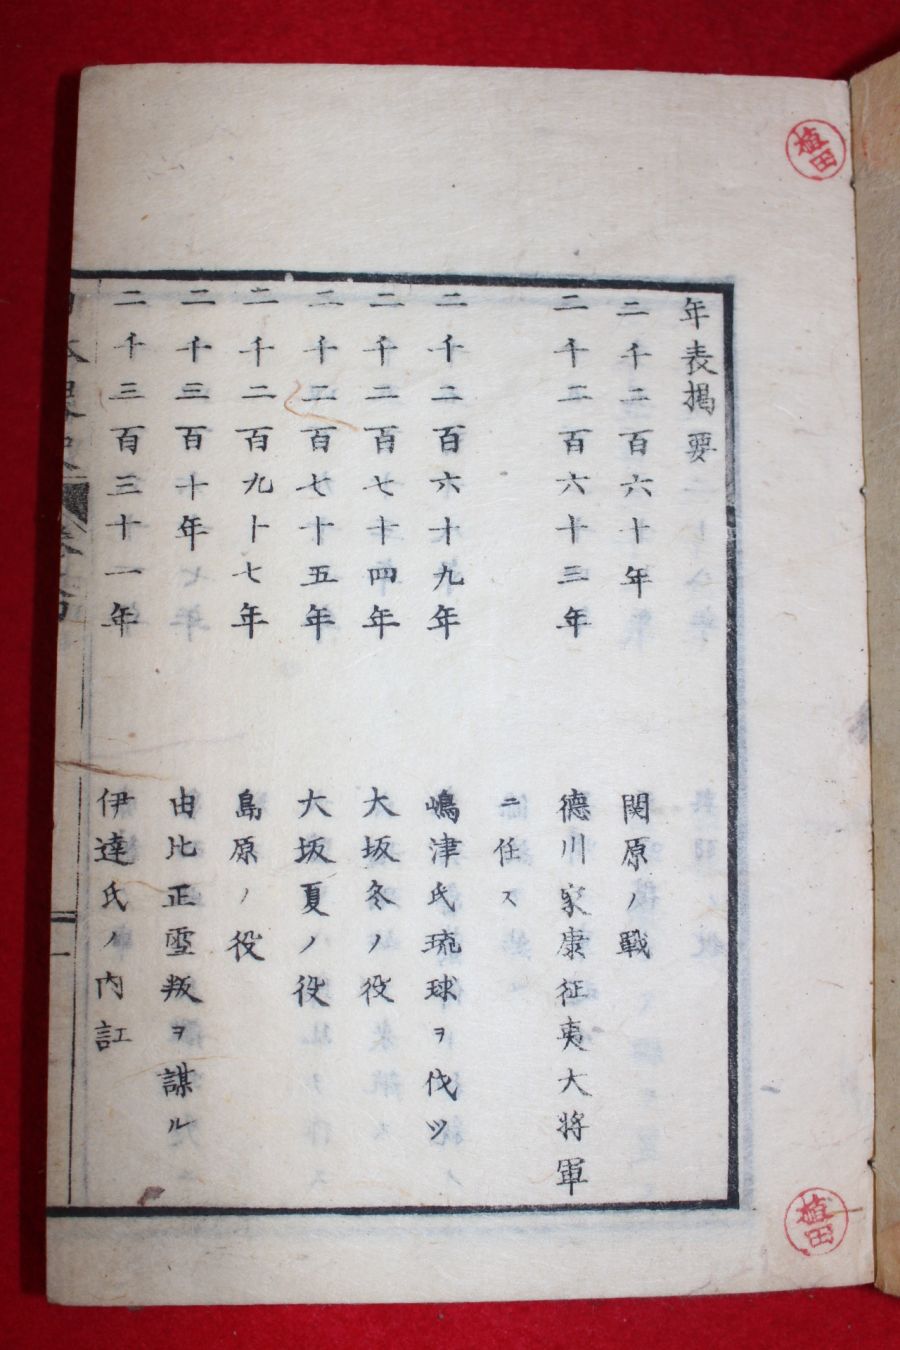 年表掲要
二千二百六十年　関原ノ戰
二千二百六十三年　德川家康征夷大将軍
ニ任ス
二千二百六十九年　嶋津氏琉球ヲ伐ツ
二千二百七十四年　大坂冬ノ役
二千二百七十五年　大坂夏ノ役
二千二百九十七年　島原ノ役
二千三百十年　由比正雪叛ヲ謀ル
二千三百三十一年　伊達氏ノ内訌
植田
植田